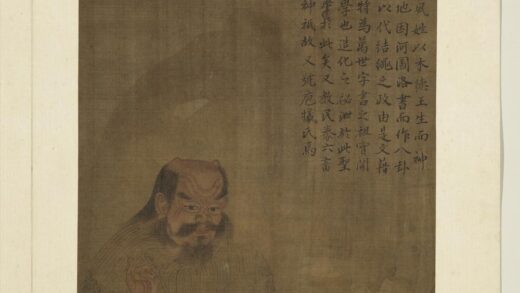 風姓以木德王生而神
地因河圖洛書而作八卦
以代結繩之政由是文籍
特為萬世字書之祖實開
學也造化之秘泄於此聖
肇於此矣又教民養六畜
神祇故又號庖犧氏焉